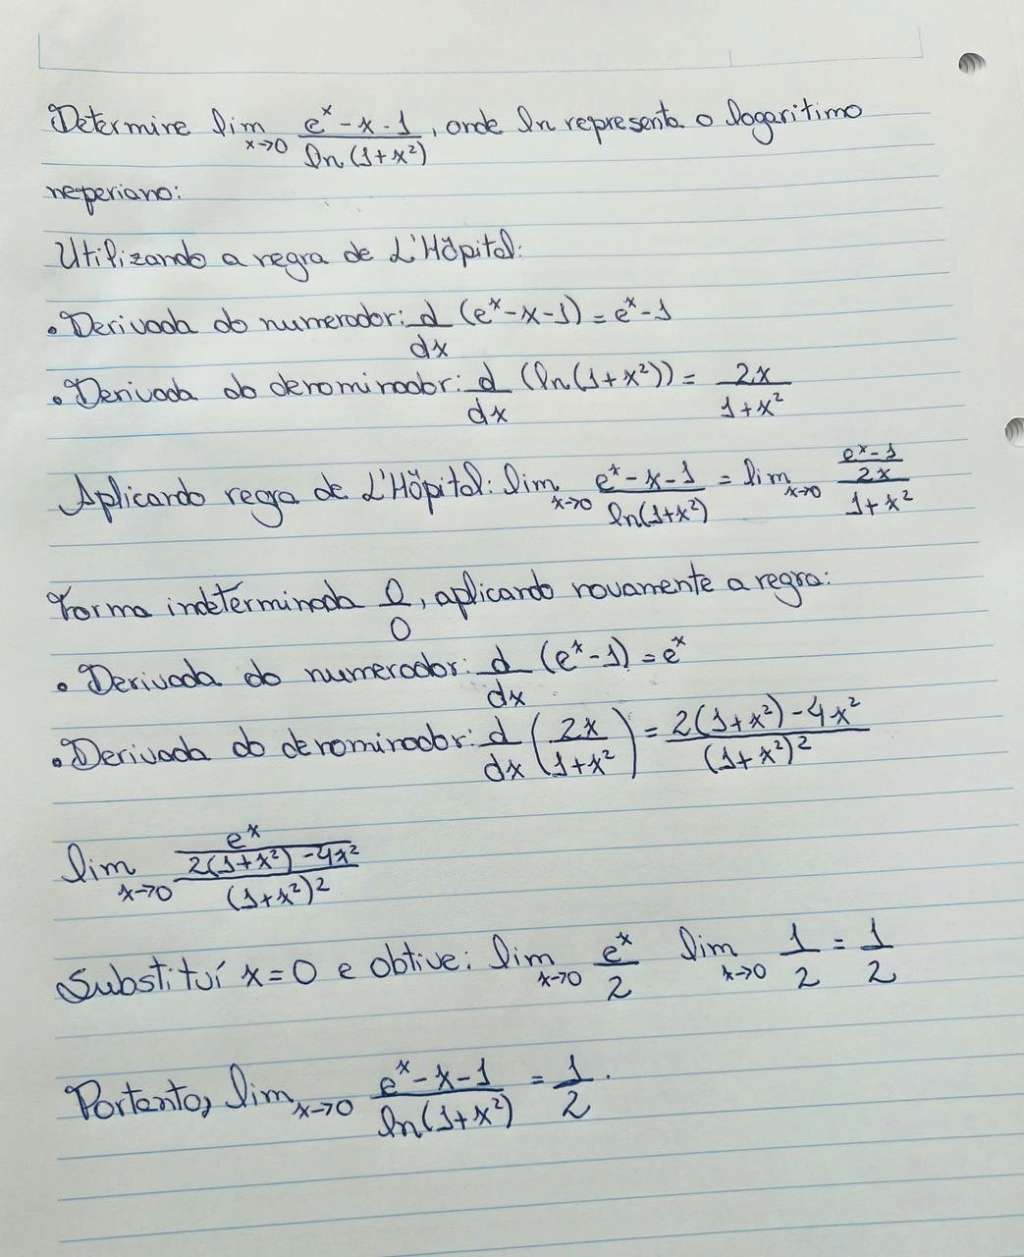 Determine lim x→0 (e^x - x - 1)/(ln(1+x²)), onde ln representa o logaritimo
neperiano:
Utilizando a regra de L'Hôpital:
• Derivada do numerador: d/dx (e^x - x - 1) = e^x - 1
• Derivada do denominador: d/dx (ln(1+x²)) = 2x/(1+x²)
Aplicando regra de L'Hôpital: lim x→0 (e^x - x - 1)/(ln(1+x²)) = lim x→0 (e^x - 1)/(2x/(1+x²))
Forma indeterminada 0/0, aplicando novamente a regra:
• Derivada do numerador: d/dx (e^x - 1) = e^x
• Derivada do denominador: d/dx (2x/(1+x²)) = (2(1+x²) - 4x²)/(1+x²)²
lim x→0 e^x/((2(1+x²) - 4x²)/(1+x²)²)
Substituí x=0 e obtive: lim x→0 e^x/2 lim x→0 1/2 = 1/2
Portanto, lim x→0 (e^x - x - 1)/(ln(1+x²)) = 1/2.